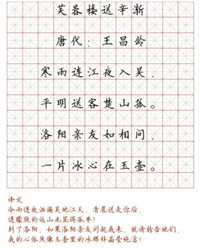 芙蓉楼送辛渐
唐代：王昌龄
寒雨连江夜入吴，
平明送客楚山孤。
洛阳亲友如相问，
一片冰心在玉壶。
译文
冷雨连夜洒遍吴地江天，清晨送走你后，
连朦胧的远山也显得孤单！
到了洛阳，如果洛阳亲友问起我来，就请转告他们，
我的心依然像玉壶里的冰那样晶莹纯洁！